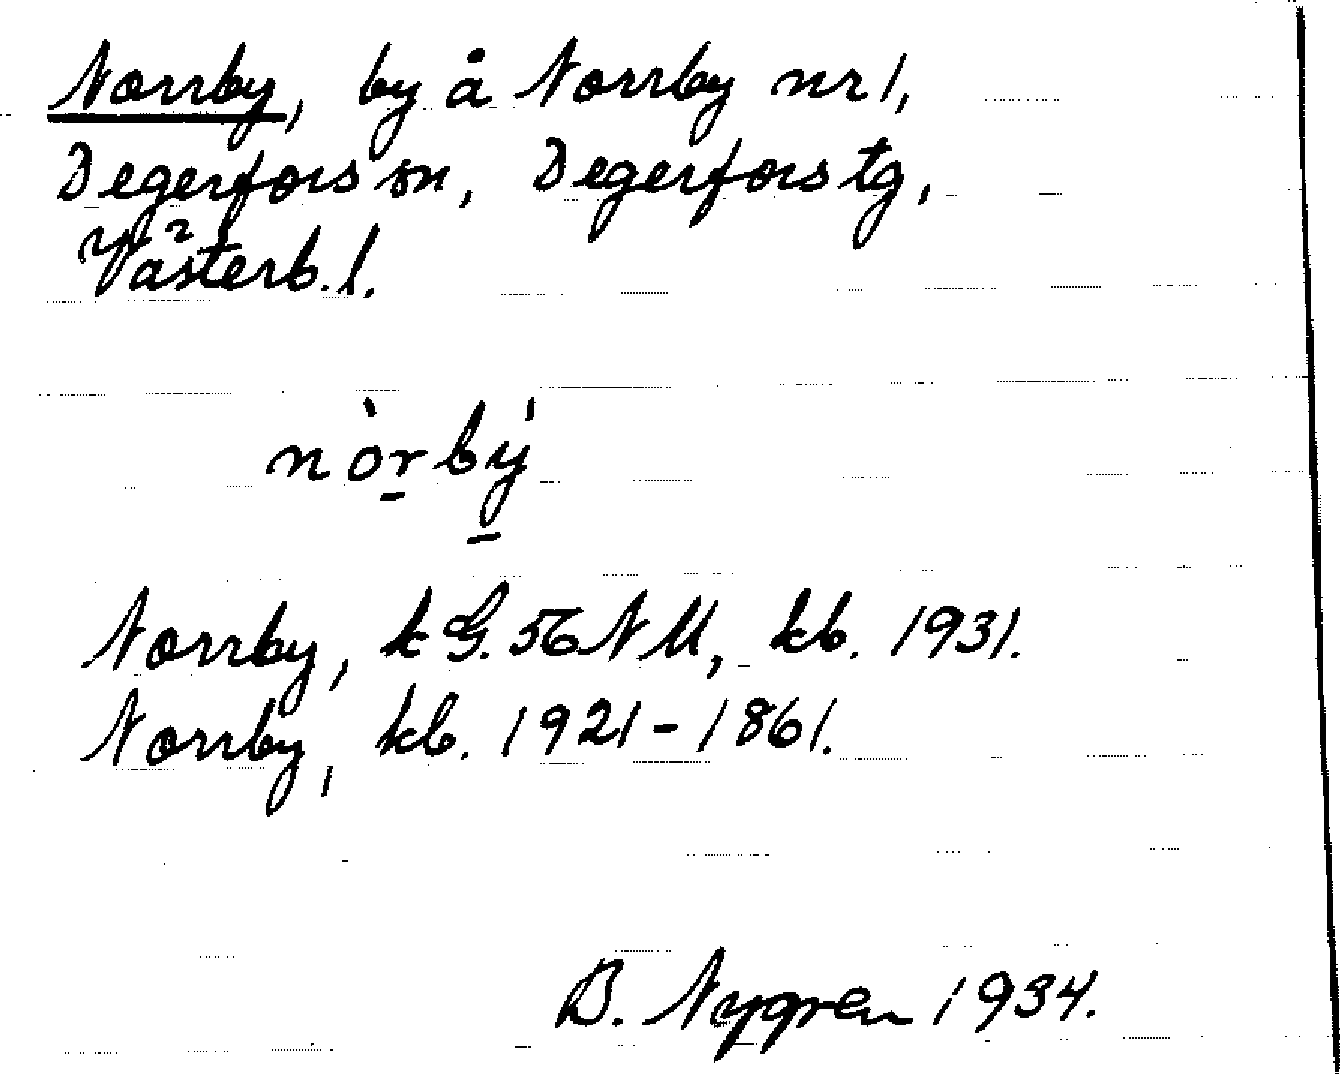 Norrby, by å Norrby nr 1,
Degerfors sn, Degerfors tg,
Västerb. l.
nòrbý
Norrby, k G. 56 NU, kb. 1931.
Norrby, kb. 1921-1861.
B. Nygren 1934.